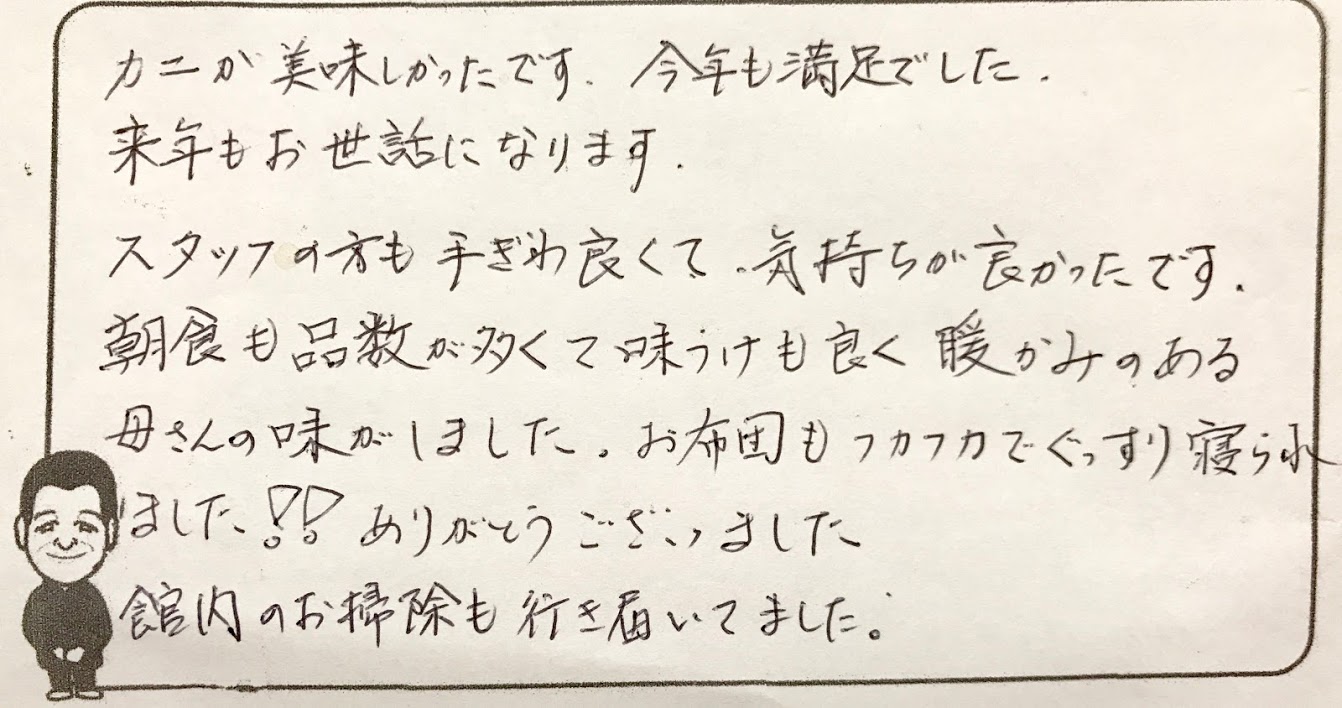 カニが美味しかったです．今年も満足でした．
来年もお世話になります．
スタッフの方も手ぎわ良くて、気持ちが良かったです．
朝食も品数が多くて味うけも良く暖かみのある
母さんの味がしました。お布団もフカフカでぐっすり寝られ
ました!! ありがとうございました
館内のお掃除も行き届いてました。